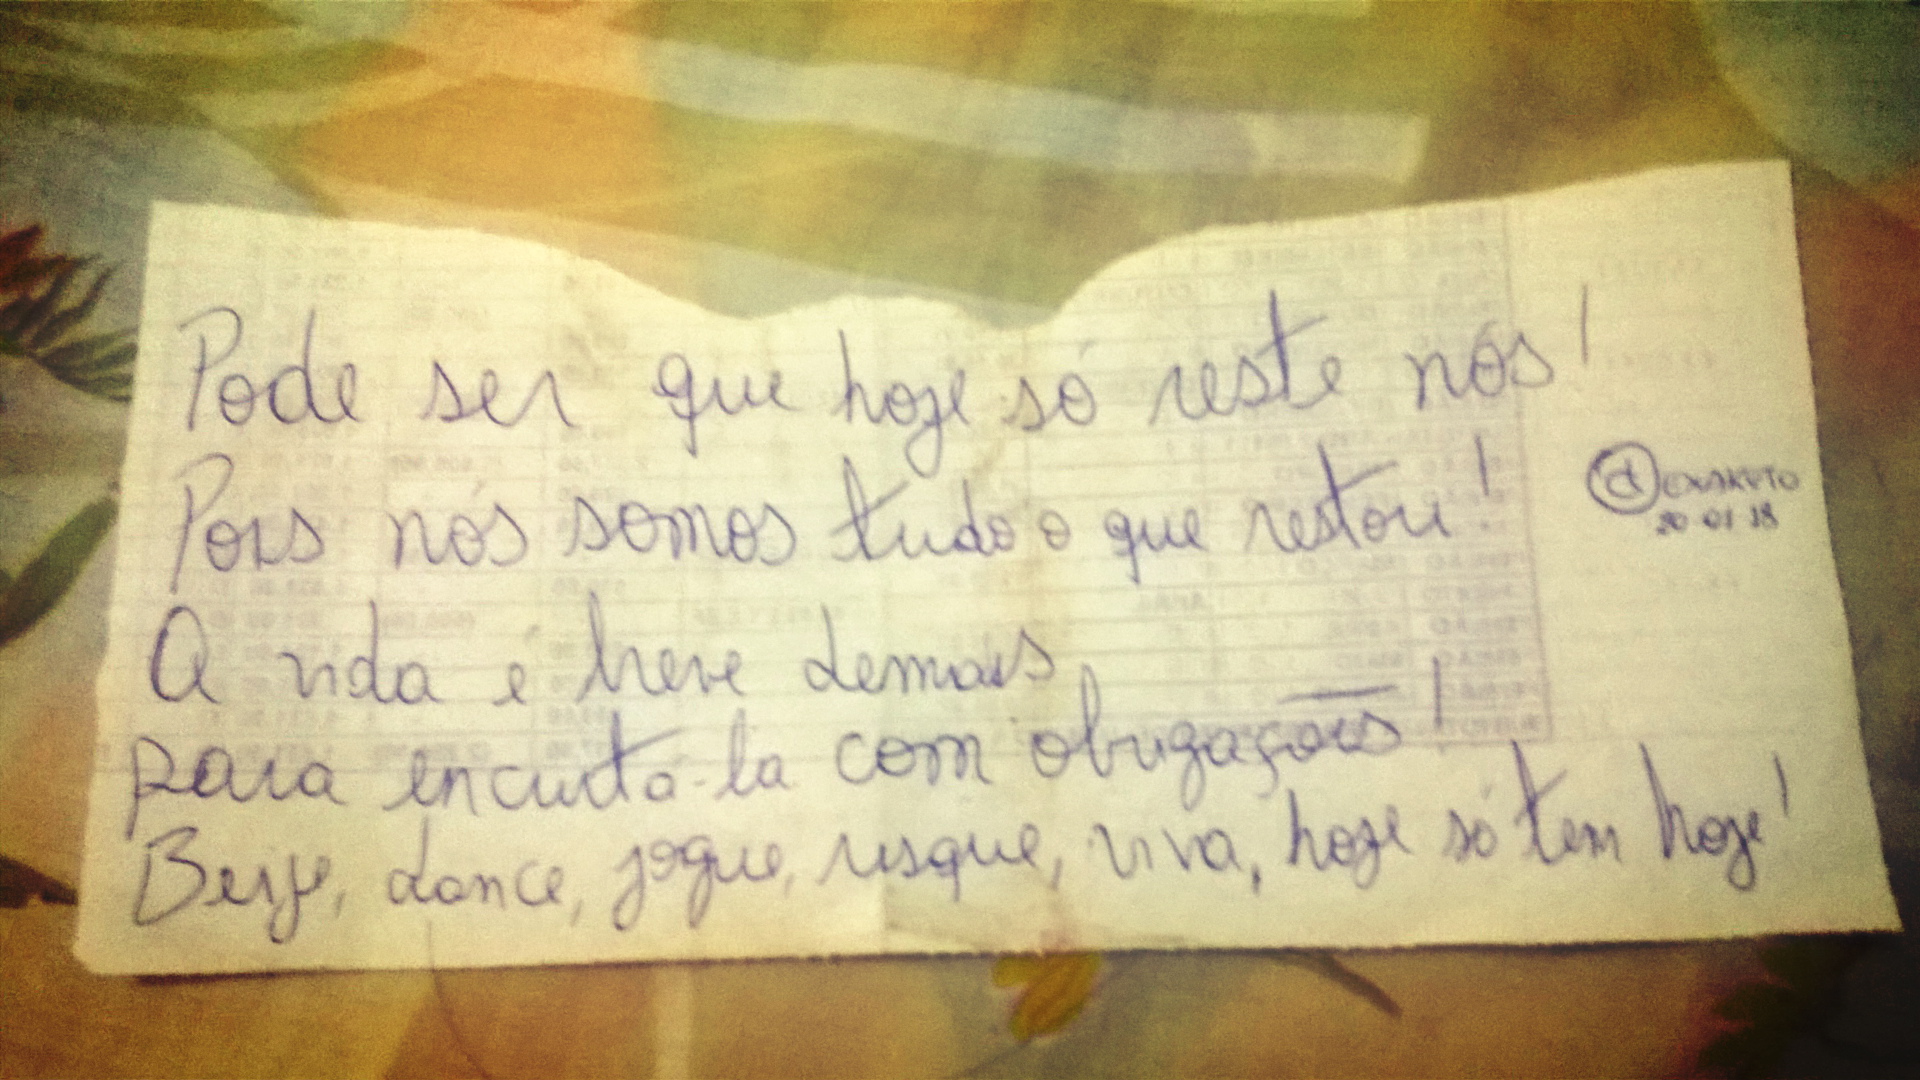 Pode ser que hoje só reste nós!
Pois nós somos tudo o que restou!
A vida é breve demais,
para encurtá-la com obrigações!
Beije, dance, jogue, risque, viva, hoje só tem hoje!
20 01 18